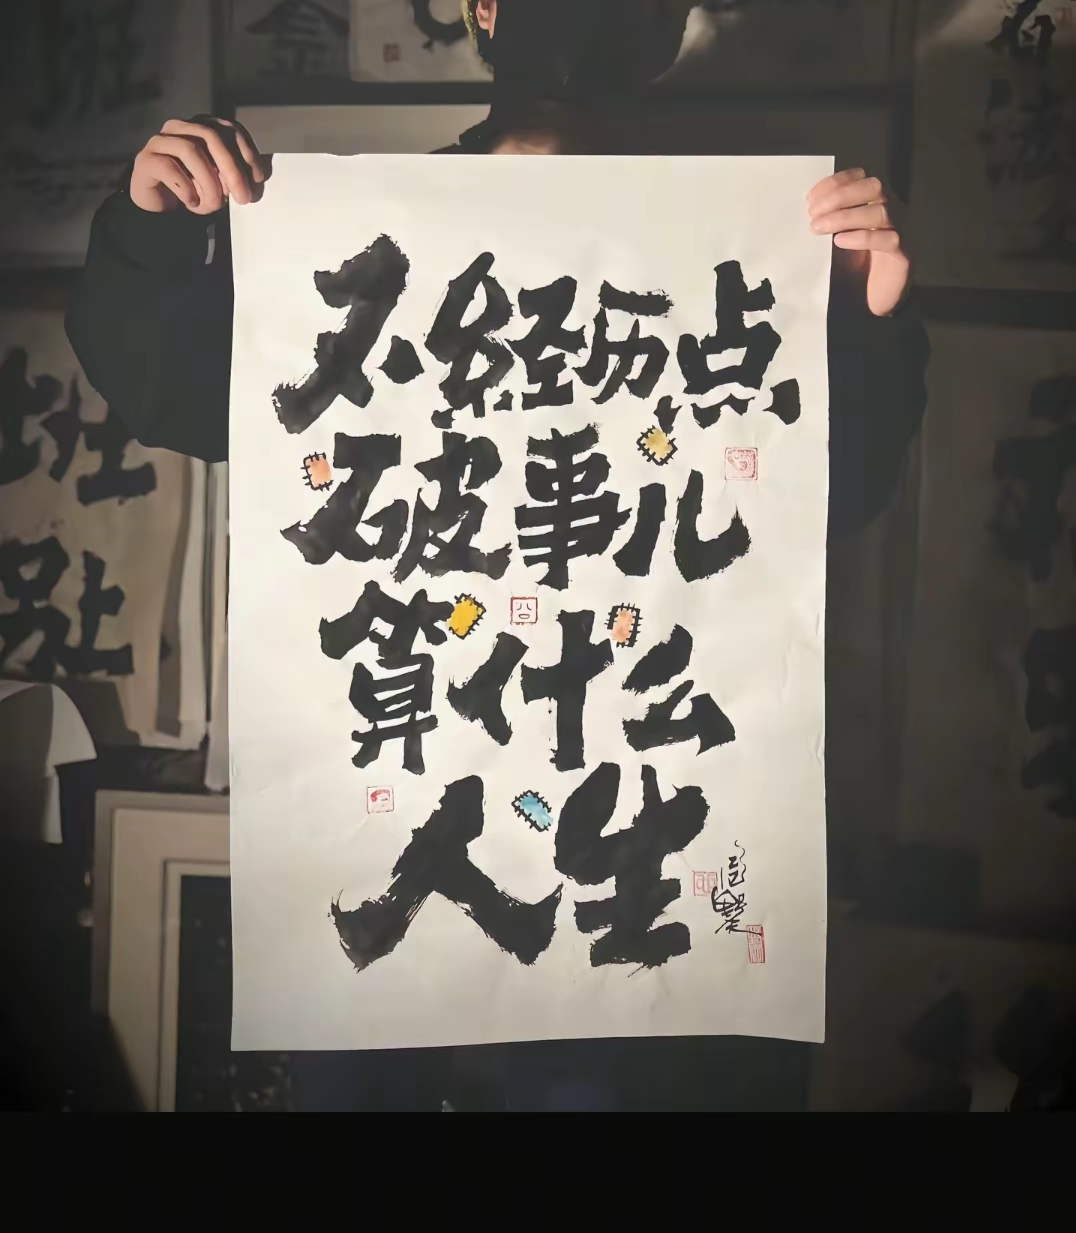 不经历点
破事儿
算什么
人生